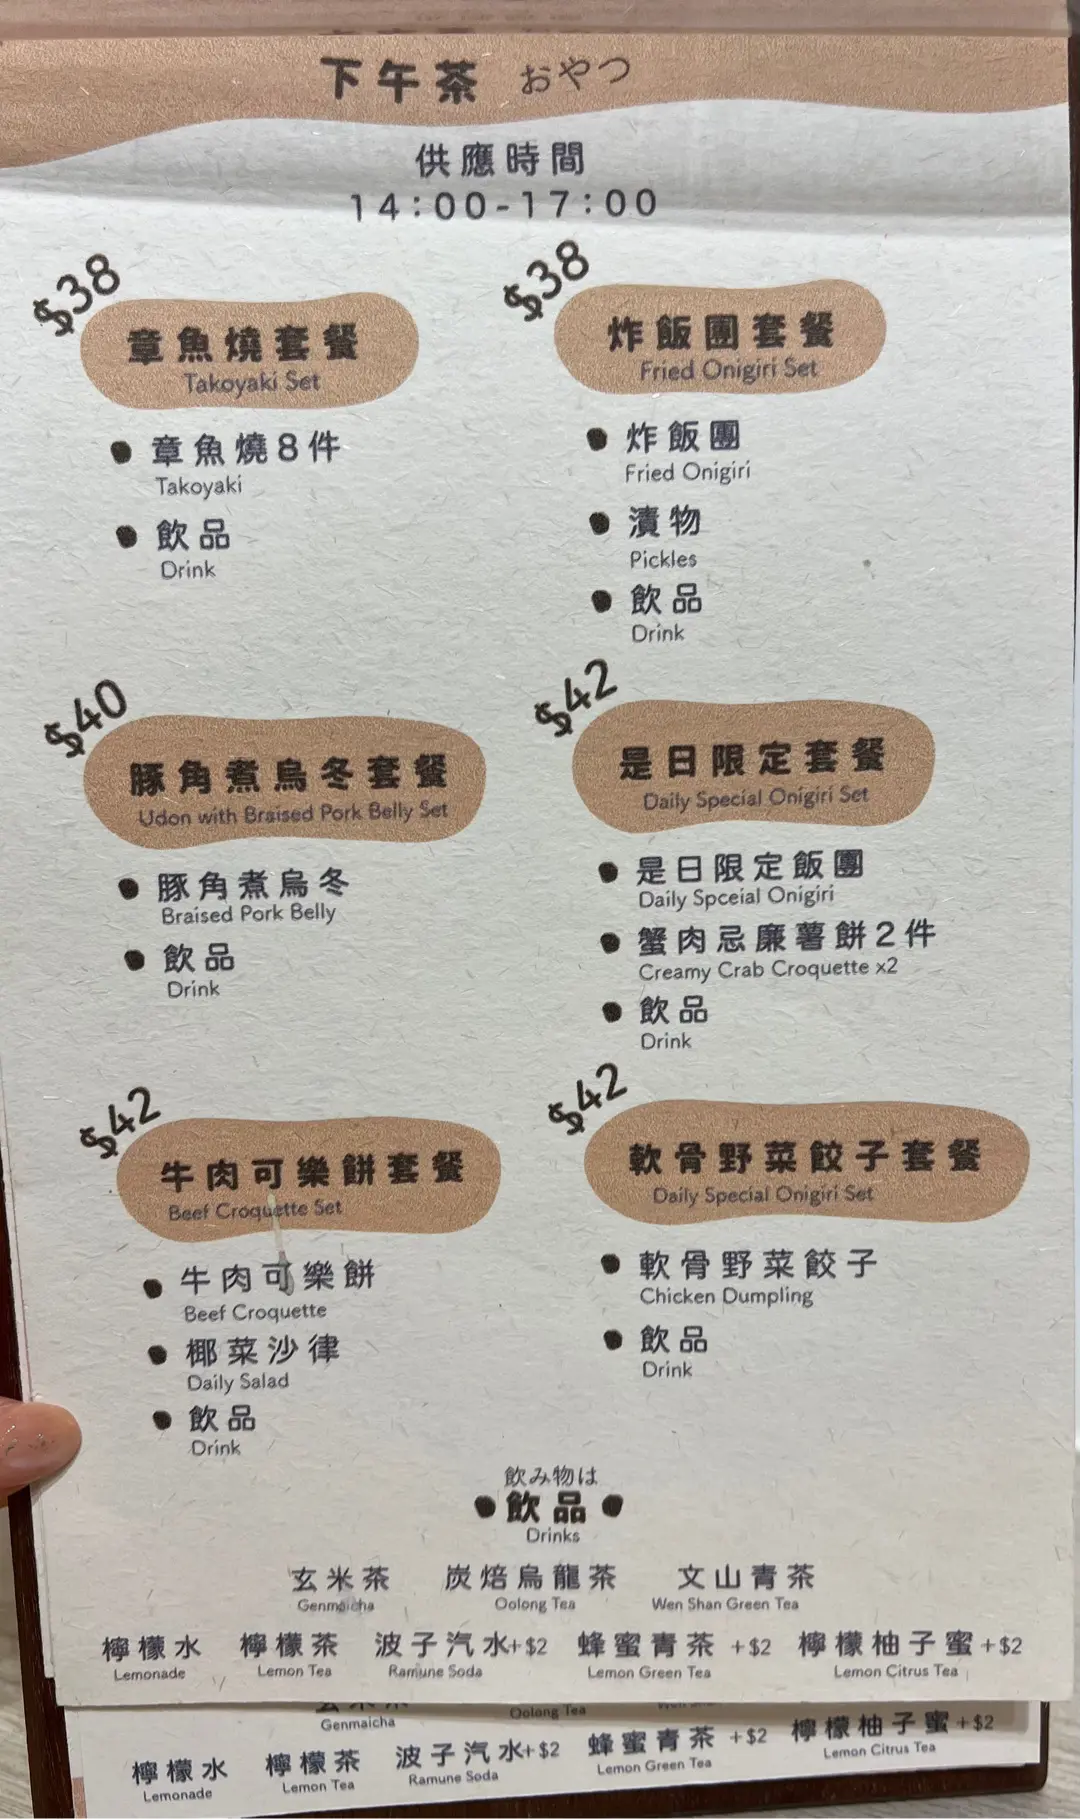 下午茶 おやつ
供應時間
14:00-17:00
$38
章魚燒套餐
Takoyaki Set
章魚燒8件
Takoyaki
飲品
Drink
$38
炸飯團套餐
Fried Onigiri Set
炸飯團
Fried Onigiri
漬物
Pickles
飲品
Drink
$40
豚角煮烏冬套餐
Udon with Braised Pork Belly Set
豚角煮烏冬
Braised Pork Belly
飲品
Drink
$42
是日限定套餐
Daily Special Onigiri Set
是日限定飯團
Daily Spceial Onigiri
蟹肉忌廉薯餅2件
Creamy Crab Croquette x2
飲品
Drink
$42
牛肉可樂餅套餐
Beef Croquette Set
牛肉可樂餅
Beef Croquette
椰菜沙律
Daily Salad
飲品
Drink
$42
軟骨野菜餃子套餐
Daily Special Onigiri Set
軟骨野菜餃子
Chicken Dumpling
飲品
Drink
飲み物は
飲品
Drinks
玄米茶 炭焙烏龍茶 文山青茶
Genmaicha Oolong Tea Wen Shan Green Tea
檸檬水 檸檬茶 波子汽水+$2 蜂蜜青茶 +$2 檸檬柚子蜜+$2
Lemonade Lemon Tea Ramune Soda Lemon Green Tea Lemon Citrus Tea
Genmaicha Oolong Tea
檸檬水 檸檬茶 波子汽水+$2 蜂蜜青茶 +$2 檸檬柚子蜜+$2
Lemonade Lemon Tea Ramune Soda Lemon Green Tea Lemon Citrus Tea